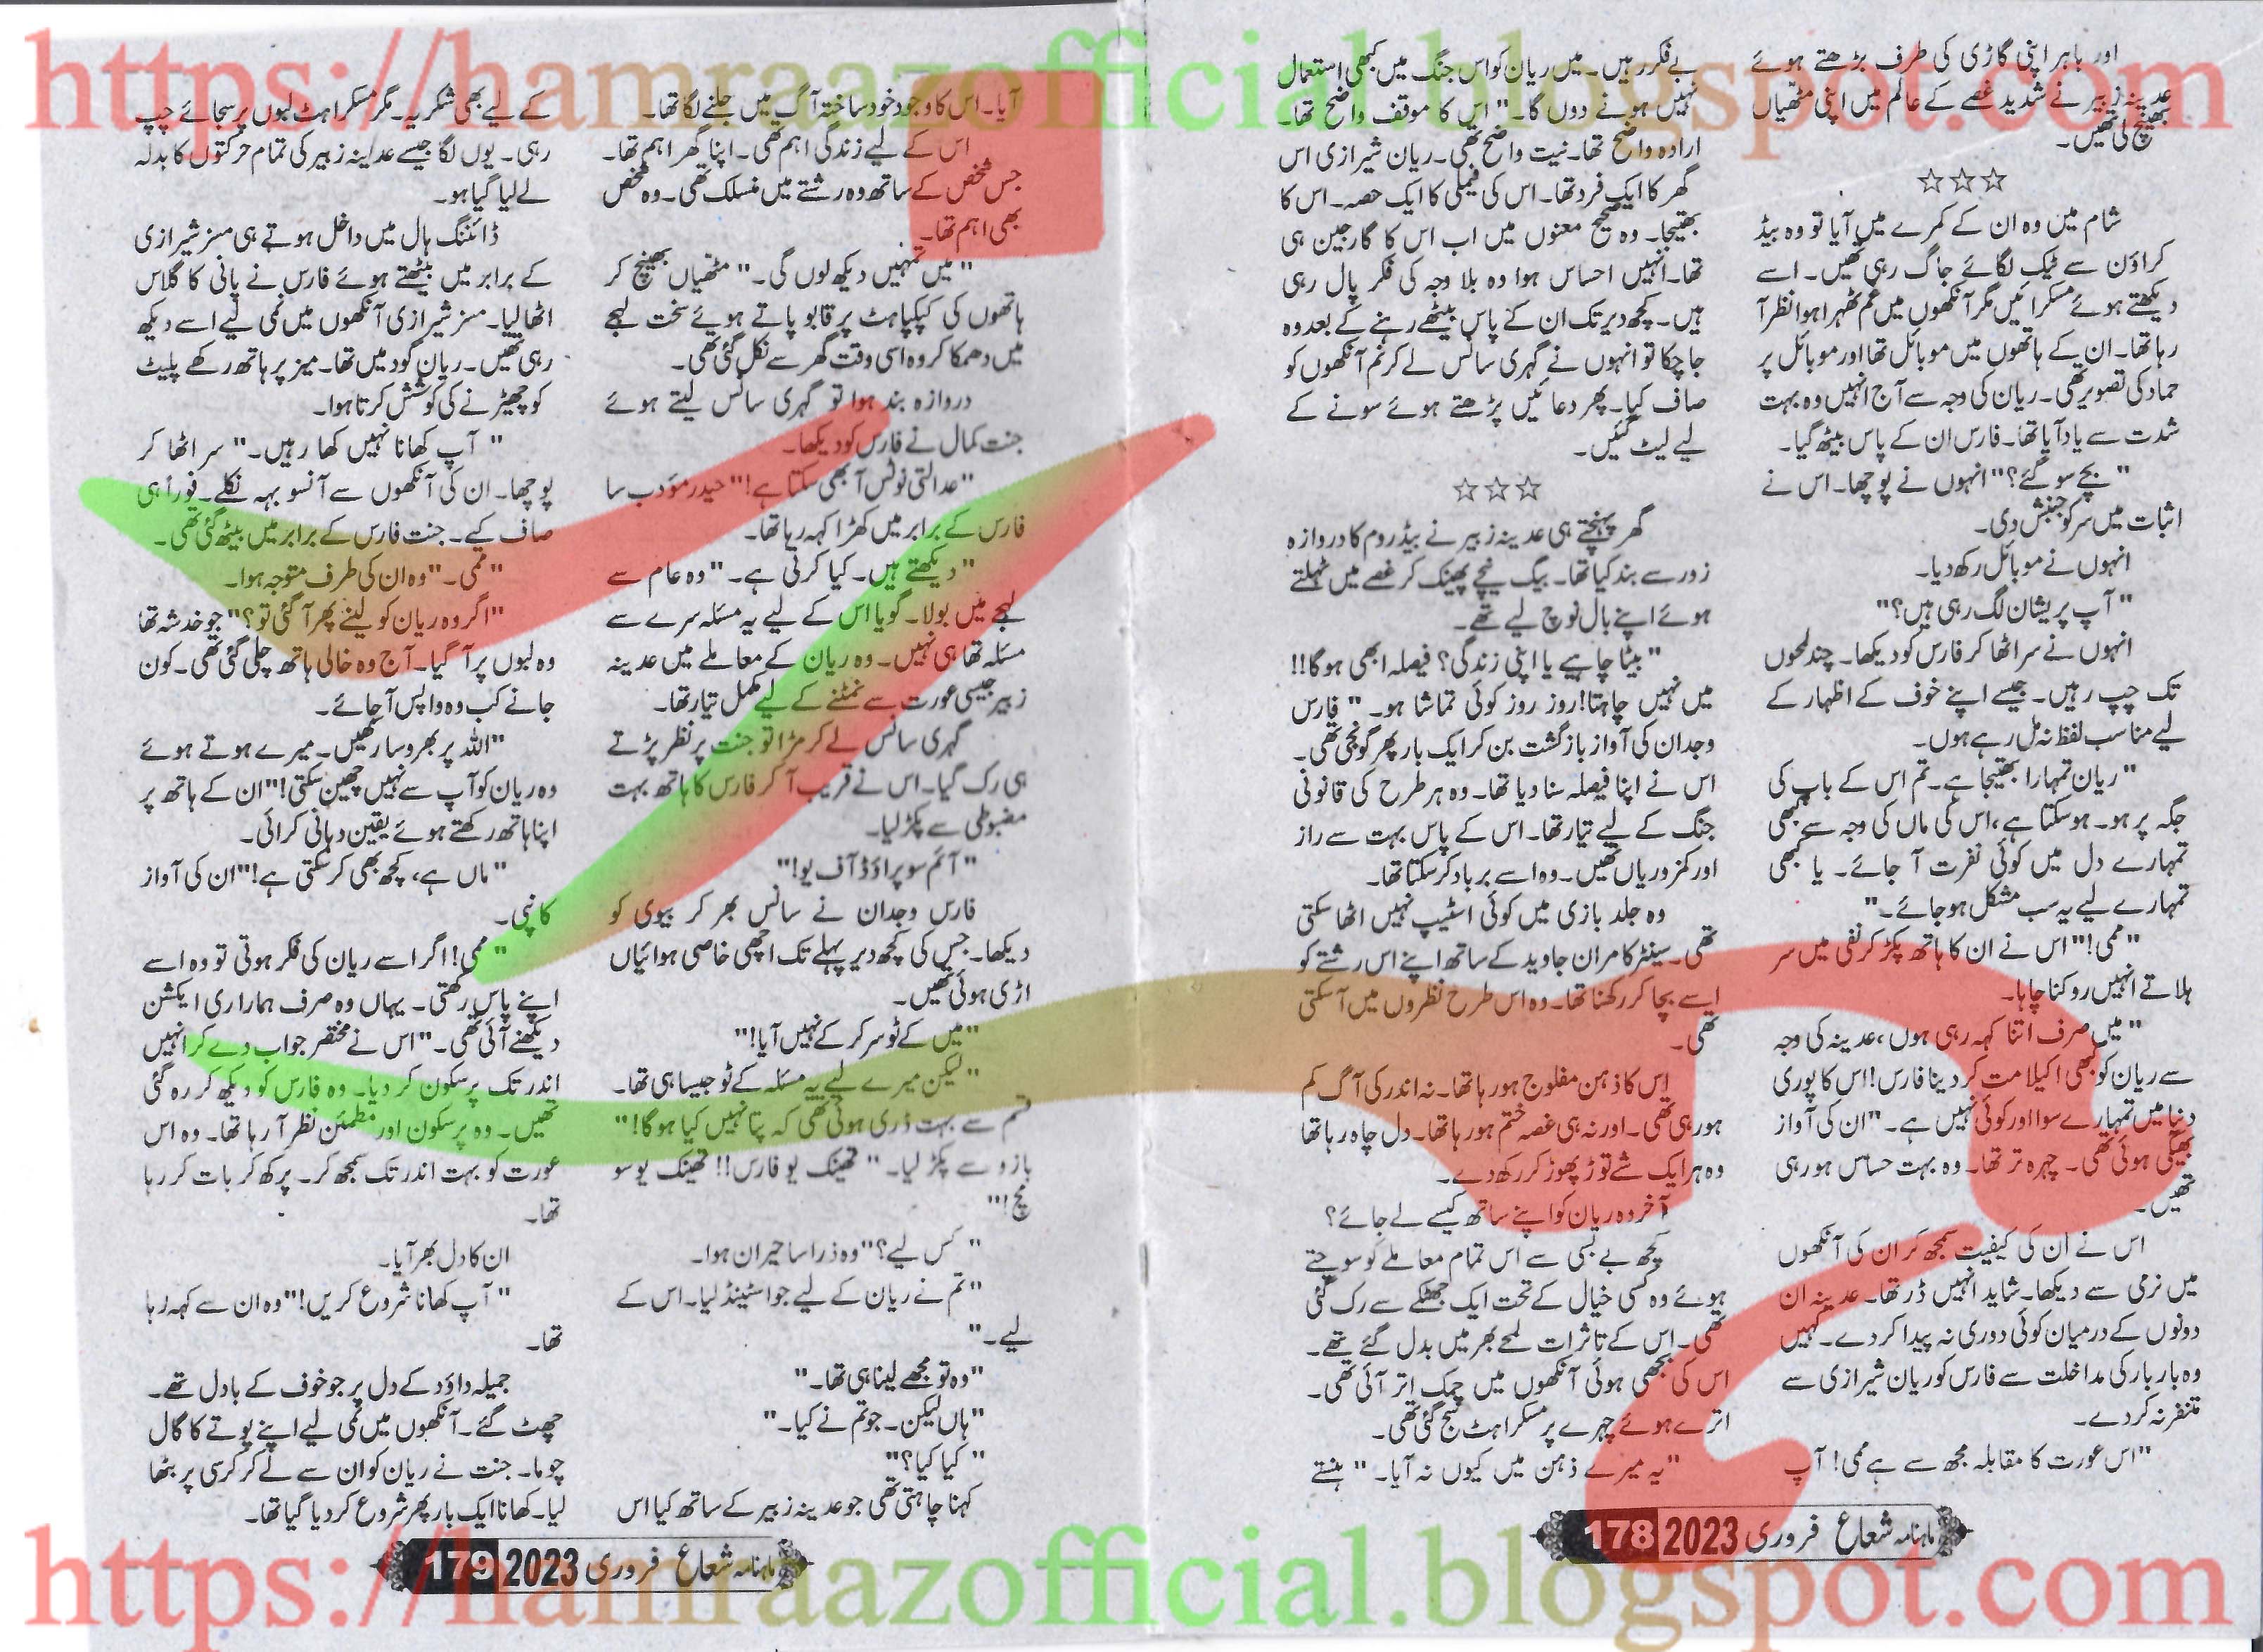 https://hamraazofficial.blogspot.com
اور باہر اپنی گاڑی کی طرف بڑھتے ہوئے
عدینہ زبیر نے شدید غصے کے عالم میں اپنی مٹھیاں
بھینچ لی تھیں۔
☆☆☆
شام میں وہ ان کے کمرے میں آیا تو وہ بیڈ
کراؤن سے ٹیک لگائے جاگ رہی تھیں۔ اسے
دیکھتے ہوئے مسکرائیں مگر آنکھوں میں غم ٹھہرا ہوا نظر آ
رہا تھا۔ ان کے ہاتھوں میں موبائل تھا اور موبائل پر
حماد کی تصویر تھی۔ ریان کی وجہ سے آج انہیں وہ بہت
شدت سے یاد آیا تھا۔ فارس ان کے پاس بیٹھ گیا۔
"بچے سو گئے؟" انہوں نے پوچھا۔ اس نے
اثبات میں سر کو جنبش دی۔
انہوں نے موبائل رکھ دیا۔
"آپ پریشان لگ رہی ہیں؟"
انہوں نے سر اٹھا کر فارس کو دیکھا۔ چند لمحوں
تک چپ رہیں۔ جیسے اپنے خوف کے اظہار کے
لیے مناسب لفظ نہ مل رہے ہوں۔
"ریان تمہارا بھتیجا ہے۔ تم اس کے باپ کی
جگہ پر ہو۔ ہوسکتا ہے، اس کی ماں کی وجہ سے کبھی
تمہارے دل میں کوئی نفرت آ جائے۔ یا کبھی
تمہارے لیے یہ سب مشکل ہو جائے۔"
"ممی!" اس نے ان کا ہاتھ پکڑ کر نفی میں سر
ہلاتے انہیں روکنا چاہا۔
"میں صرف اتنا کہہ رہی ہوں، عدینہ کی وجہ
سے ریان کو بھی اکیلا مت کر دینا فارس! اس کا پوری
دنیا میں تمہارے سوا اور کوئی نہیں ہے۔" ان کی آواز
بھیگی ہوئی تھی۔ چہرہ تر تھا۔ وہ بہت حساس ہو رہی
تھیں۔
اس نے ان کی کیفیت سمجھ کر ان کی آنکھوں
میں نرمی سے دیکھا۔ شاید انہیں ڈر تھا۔ عدینہ ان
دونوں کے درمیان کوئی دوری نہ پیدا کر دے۔ کہیں
وہ بار بار کی مداخلت سے فارس کو ریان شیرازی سے
متنفر نہ کر دے۔
"اس عورت کا مقابلہ مجھ سے ہے ممی! آپ
بے فکر رہیں۔ میں ریان کو اس جنگ میں کبھی استعمال
نہیں ہونے دوں گا۔" اس کا موقف واضح تھا۔
ارادہ واضح تھا۔ نیت واضح تھی۔ ریان شیرازی اس
گھر کا ایک فرد تھا۔ اس کی فیملی کا ایک حصہ۔ اس کا
بھتیجا۔ وہ صحیح معنوں میں اب اس کا گارجین ہی
تھا۔ انہیں احساس ہوا وہ بلا وجہ کی فکر پال رہی
ہیں۔ کچھ دیر تک ان کے پاس بیٹھے رہنے کے بعد وہ
جا چکا تو انہوں نے گہری سانس لے کر نم آنکھوں کو
صاف کیا۔ پھر دعائیں پڑھتے ہوئے سونے کے
لیے لیٹ گئیں۔
☆☆☆
گھر پہنچتے ہی عدینہ زبیر نے بیڈ روم کا دروازہ
زور سے بند کیا تھا۔ بیگ نیچے پھینک کر غصے میں ٹہلتے
ہوئے اپنے بال نوچ لیے تھے۔
"بیٹا چاہیے یا اپنی زندگی؟ فیصلہ ابھی ہو گا!!
میں نہیں چاہتا! روز روز کوئی تماشا ہو۔" فارس
وجدان کی آواز بازگشت بن کر ایک بار پھر گونجی تھی۔
اس نے اپنا فیصلہ سنا دیا تھا۔ وہ ہر طرح کی قانونی
جنگ کے لیے تیار تھا۔ اس کے پاس بہت سے راز
اور کمزوریاں تھیں۔ وہ اسے برباد کر سکتا تھا۔
وہ جلد بازی میں کوئی اسٹیپ نہیں اٹھا سکتی
تھی۔ سینٹر کامران جاوید کے ساتھ اپنے اس رشتے کو
ایسے بچا کر رکھنا تھا۔ وہ اس طرح نظروں میں آ سکتی
تھی۔
اس کا ذہن مفلوج ہو رہا تھا۔ نہ اندر کی آگ کم
ہو رہی تھی۔ اور نہ ہی غصہ ختم ہو رہا تھا۔ دل چاہ رہا تھا
وہ ہر ایک شے توڑ پھوڑ کر رکھ دے۔
آخر وہ ریان کو اپنے ساتھ کیسے لے جائے؟
کچھ بے بسی سے اس تمام معاملے کو سوچتے
ہوئے وہ کسی خیال کے تحت ایک جھٹکے سے رک گئی
تھی۔ اس کے تاثرات لمحے بھر میں بدل گئے تھے۔
اس کی بجھی ہوئی آنکھوں میں چمک اتر آئی تھی۔
اترے ہوئے چہرے پر مسکراہٹ سج گئی تھی۔
"یہ میرے ذہن میں کیوں نہ آیا۔" ہنستے
ماہنامہ شعاع فروری 2023 178
آیا۔ اس کا وجود خود ساختہ آگ میں جلنے لگا تھا۔
اس کے لیے زندگی اہم تھی۔ اپنا گھر اہم تھا۔
جس شخص کے ساتھ وہ رشتے میں منسلک تھی۔ وہ شخص
بھی اہم تھا۔
"میں تمہیں دیکھ لوں گی۔" مٹھیاں بھینچ کر
ہاتھوں کی کپکپاہٹ پر قابو پاتے ہوئے سخت لہجے
میں دھمکا کر وہ اسی وقت گھر سے نکل گئی تھی۔
دروازہ بند ہوا تو گہری سانس لیتے ہوئے
جنت کمال نے فارس کو دیکھا۔
"عدالتی نوٹس آ بھی سکتا ہے!" حیدر مؤدب سا
فارس کے برابر میں کھڑا کہہ رہا تھا۔
"دیکھتے ہیں۔ کیا کرتی ہے۔" وہ عام سے
لہجے میں بولا۔ گویا اس کے لیے یہ مسئلہ سرے سے
مسئلہ تھا ہی نہیں۔ وہ ریان کے معاملے میں عدینہ
زبیر جیسی عورت سے نمٹنے کے لیے مکمل تیار تھا۔
گہری سانس لے کر مڑا تو جنت پر نظر پڑتے
ہی رک گیا۔ اس نے قریب آ کر فارس کا ہاتھ بہت
مضبوطی سے پکڑ لیا۔
"آئم سو پراؤڈ آف یو!"
فارس وجدان نے سانس بھر کر بیوی کو
دیکھا۔ جس کی کچھ دیر پہلے تک اچھی خاصی ہوائیاں
اڑی ہوئی تھیں۔
"میں کے ٹو سر کر کے نہیں آیا!"
"لیکن میرے لیے یہ مسئلہ کے ٹو جیسا ہی تھا۔
قسم سے بہت ڈری ہوئی تھی کہ پتا نہیں کیا ہو گا!"
بازو سے پکڑ لیا۔ "تھینک یو فارس!! تھینک یو سو
مچ!"
"کس لیے؟" وہ ذرا سا حیران ہوا۔
"تم نے ریان کے لیے جو اسٹینڈ لیا۔ اس کے
لیے۔"
"وہ تو مجھے لینا ہی تھا۔"
"ہاں لیکن۔ جو تم نے کیا۔"
"کیا کیا؟"
کہنا چاہتی تھی جو عدینہ زبیر کے ساتھ کیا اس
کے لیے بھی شکریہ۔ مگر مسکراہٹ لبوں پر سجائے چپ
رہی۔ یوں لگا جیسے عدینہ زبیر کی تمام حرکتوں کا بدلہ
لے لیا گیا ہو۔
ڈائننگ ہال میں داخل ہوتے ہی مسز شیرازی
کے برابر میں بیٹھتے ہوئے فارس نے پانی کا گلاس
اٹھا لیا۔ مسز شیرازی آنکھوں میں نمی لیے اسے دیکھ
رہی تھیں۔ ریان گود میں تھا۔ میز پر ہاتھ رکھے پلیٹ
کو چھیڑنے کی کوشش کرتا ہوا۔
"آپ کھانا نہیں کھا رہیں۔" سر اٹھا کر
پوچھا۔ ان کی آنکھوں سے آنسو بہہ نکلے۔ فوراً ہی
صاف کیے۔ جنت فارس کے برابر میں بیٹھ گئی تھی۔
"ممی۔" وہ ان کی طرف متوجہ ہوا۔
"اگر وہ ریان کو لینے پھر آ گئی تو؟" جو خدشہ تھا
وہ لبوں پر آ گیا۔ آج وہ خالی ہاتھ چلی گئی تھی۔ کون
جانے کب وہ واپس آ جائے۔
"اللہ پر بھروسا رکھیں۔ میرے ہوتے ہوئے
وہ ریان کو آپ سے نہیں چھین سکتی!" ان کے ہاتھ پر
اپنا ہاتھ رکھتے ہوئے یقین دہانی کرائی۔
"ماں ہے، کچھ بھی کر سکتی ہے!" ان کی آواز
کانپی۔
"ممی! اگر اسے ریان کی فکر ہوتی تو وہ اسے
اپنے پاس رکھتی۔ یہاں وہ صرف ہمارا ری ایکشن
دیکھنے آئی تھی۔" اس نے مختصر جواب دے کر انہیں
اندر تک پرسکون کر دیا۔ وہ فارس کو دیکھ کر رہ گئی
تھیں۔ وہ پرسکون اور مطمئن نظر آ رہا تھا۔ وہ اس
عورت کو بہت اندر تک سمجھ کر۔ پرکھ کر بات کر رہا
تھا۔
ان کا دل بھر آیا۔
"آپ کھانا شروع کریں!" وہ ان سے کہہ رہا
تھا۔
جمیلہ داؤد کے دل پر جو خوف کے بادل تھے۔
چھٹ گئے۔ آنکھوں میں نمی لیے اپنے پوتے کا گال
چوما۔ جنت نے ریان کو ان سے لے کر کرسی پر بٹھا
لیا۔ کھانا ایک بار پھر شروع کر دیا گیا تھا۔
ماہنامہ شعاع فروری 2023 179
https://hamraazofficial.blogspot.com